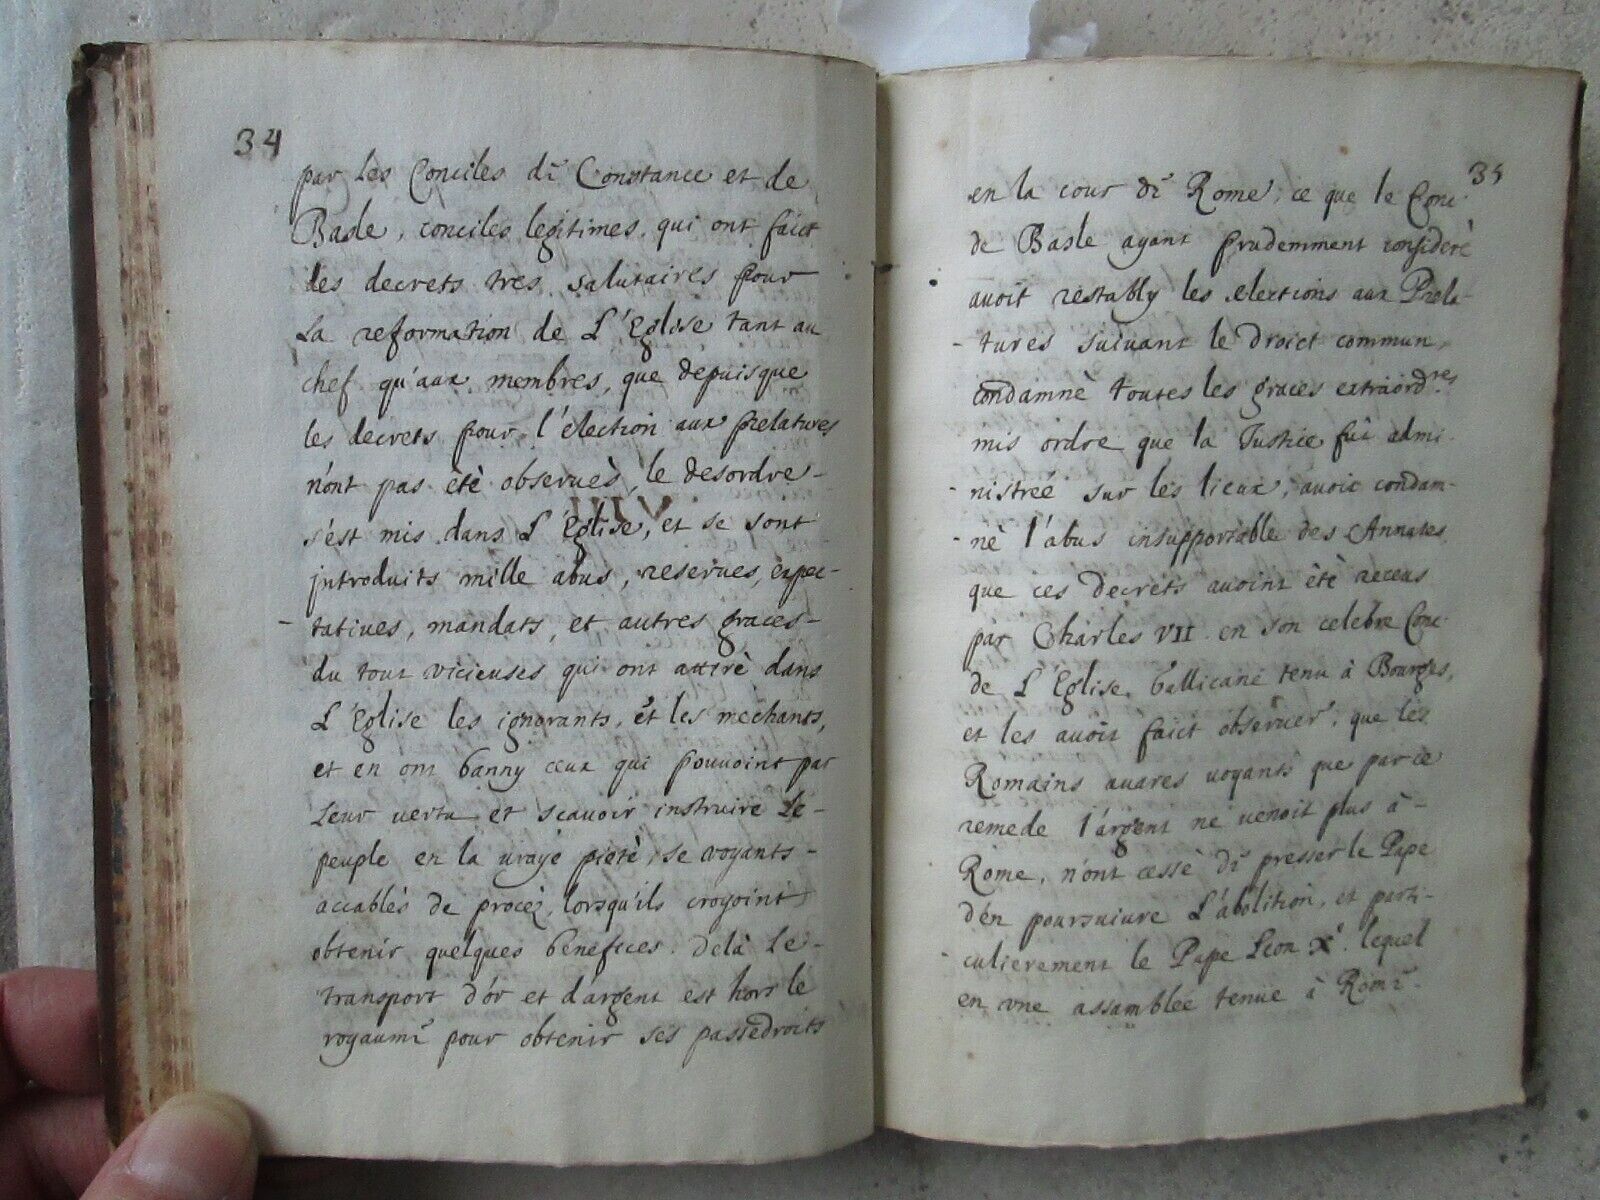 34
par les Conciles de Constance et de
Basle, conciles legitimes, qui ont faict
des decrets tres salutaires pour
La reformation de L'Eglise tant au
chef qu'aux membres, que depuisque
les decrets pour l'élection aux prelatures
n'ont pas êtè observès, le desordre-
s'est mis dans L'Eglise, et se sont
jntroduits mille abus, reserves, expec-
-tatives, mandats, et autres graces-
du tout vicieuses qui ont attirè dans
L'Eglise les ignorants, et les méchants,
et en ont banny ceux qui pouvoint par
Leur vertu et scavoir instruire Le-
peuple en la vraye pietè, se voyants-
accablés de procéz, lorsqu'ils croyoint
obtenir quelques bénéfices. Delà Le-
transport d'or et d'argent est hors le
royaume pour obtenir ses passedroits
35
en la cour de Rome, ce que le Conc.
de Basle ayant prudemment considerè
avoit restably les elections aux Prela-
-tures suivant le Droict commun,
condamnè toutes les graces extraord.res
mis ordre que la Justice fut admi-
-nistreé sur les lieux, avoit condam-
-nè l'abus insupportable des Annates.
que ces decrets avoint êtè receus
par Charles VII. en son celebre Conc.
de L'Eglise Gallicane tenu à Bourges,
et les avoit faict observer, que les
Romains avares voyants que par ce
remede l'argent ne venoit plus à-
Rome, n'ont cessè de presser le Pape
d'en poursuivre L'abolition, et parti-
-culierement le Pape Leon Xe. lequel
en une assamblée tenue à Rome.